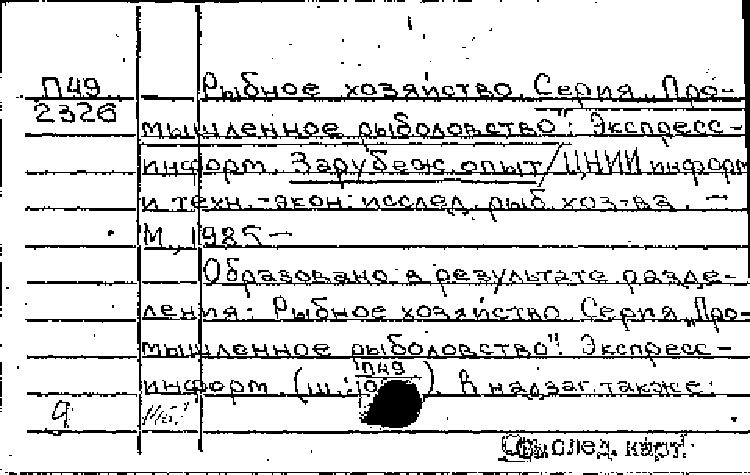 П49
2326
Рыбное хозяйство. Серия „Про-
мышленное рыболовство": Экспресс-
информ. Зарубеж. опыт / ЦНИИ информ
и техн.-экон. исслед. рыб. хоз-ва. —
М., 1985 —
Образовано в результате разде-
ления: Рыбное хозяйство. Серия „Про-
мышленное рыболовство". Экспресс-
информ. (ш.: П49). В надзаг. также:
След. карт.